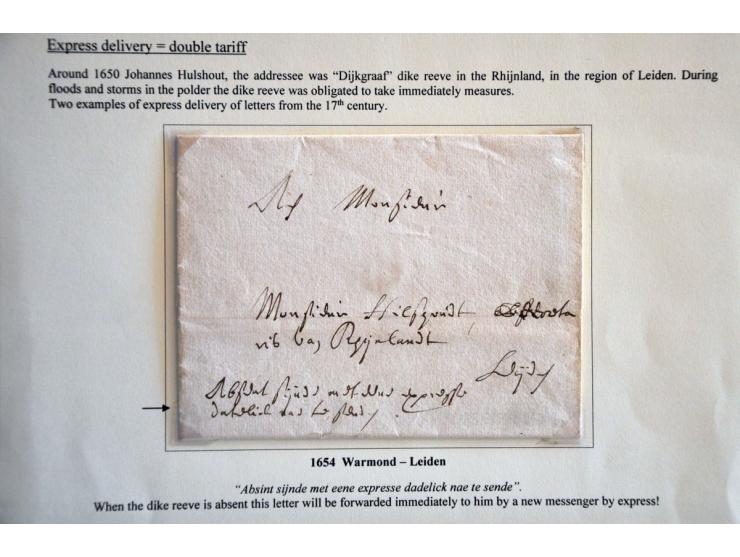 Express delivery = double tariff
Around 1650 Johannes Hulshout, the addressee was “Dijkgraaf” dike reeve in the Rhijnland, in the region of Leiden. During
floods and storms in the polder the dike reeve was obligated to take immediately measures.
Two examples of express delivery of letters from the 17th century.
Monsieur
Monsieur
van Rhijnlandt
Absint sijnde met eene expresse
dadelick nae te sende
1654 Warmond – Leiden
“Absint sijnde met eene expresse dadelick nae te sende”.
When the dike reeve is absent this letter will be forwarded immediately to him by a new messenger by express!